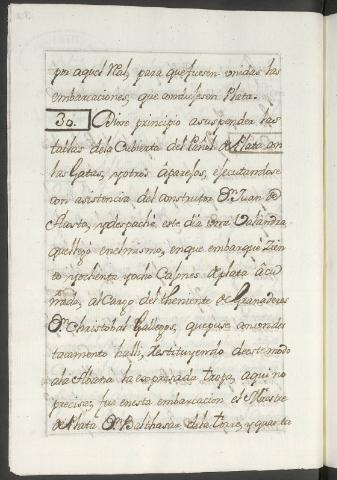 por aquel Real, para que fuesen unidas las
embarcaciones, que condujesen Plata.
30. Diose principio a suspender las
tablas dela Cubierta del Peñol de Plata con
las Gatas, y otros Aparejos, ejecutandose
con asistencia del constructor Dn. Juan de
Acosta, y despaché este dia otra Valandra
que llegó en el mismo, en que embarqué Zien
to y ochenta y ocho Capnes. de plata acu
ñada, al Cargo del theniente de Granaderos
Dn. Christobal Gallegos, que puse con un des
tacamento halli, restituyendo de este modo
ala Abana la expresada tropa, aqui no
precisa; fue en esta embarcacion el Maestre
de Plata Dn. Balthasar dela Torre, y quarta